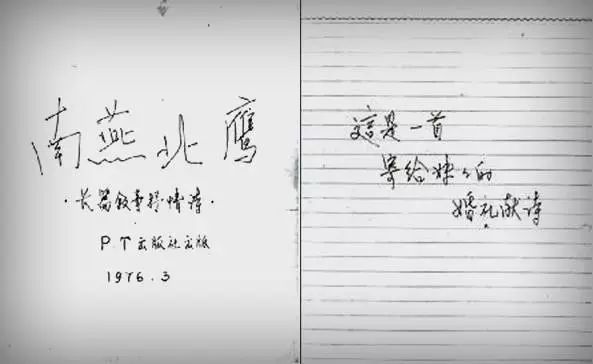 南燕北鹰
·长篇叙事抒情诗·
P.T出版社出版
1976.3
这是一首
寄给妹々的
婚礼献诗